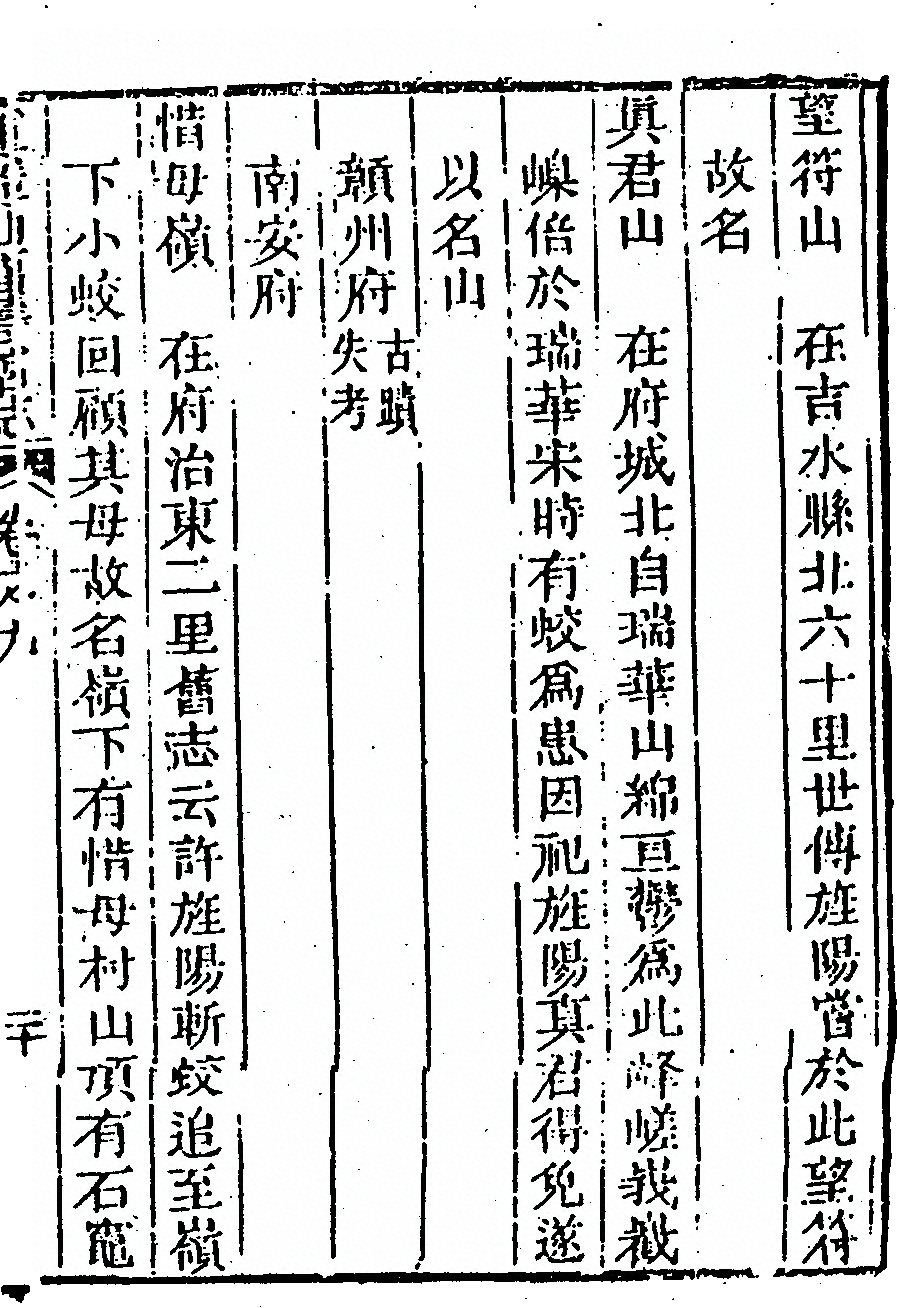 望符山　在吉水縣北六十里世傳旌陽嘗於此望符
故名
眞君山　在府城北自瑞華山綿亘欎爲此峰嵯峩巀
嶫倍於瑞華宋時有蛟爲患因祀旌陽真君得免遂
以名山
贛州府古蹟失考
南安府
惜母嶺　在府治東二里舊志云許旌陽斬蛟追至嶺
下小蛟回顧其母故名嶺下有惜母村山頂有石竈
卷之九
二十